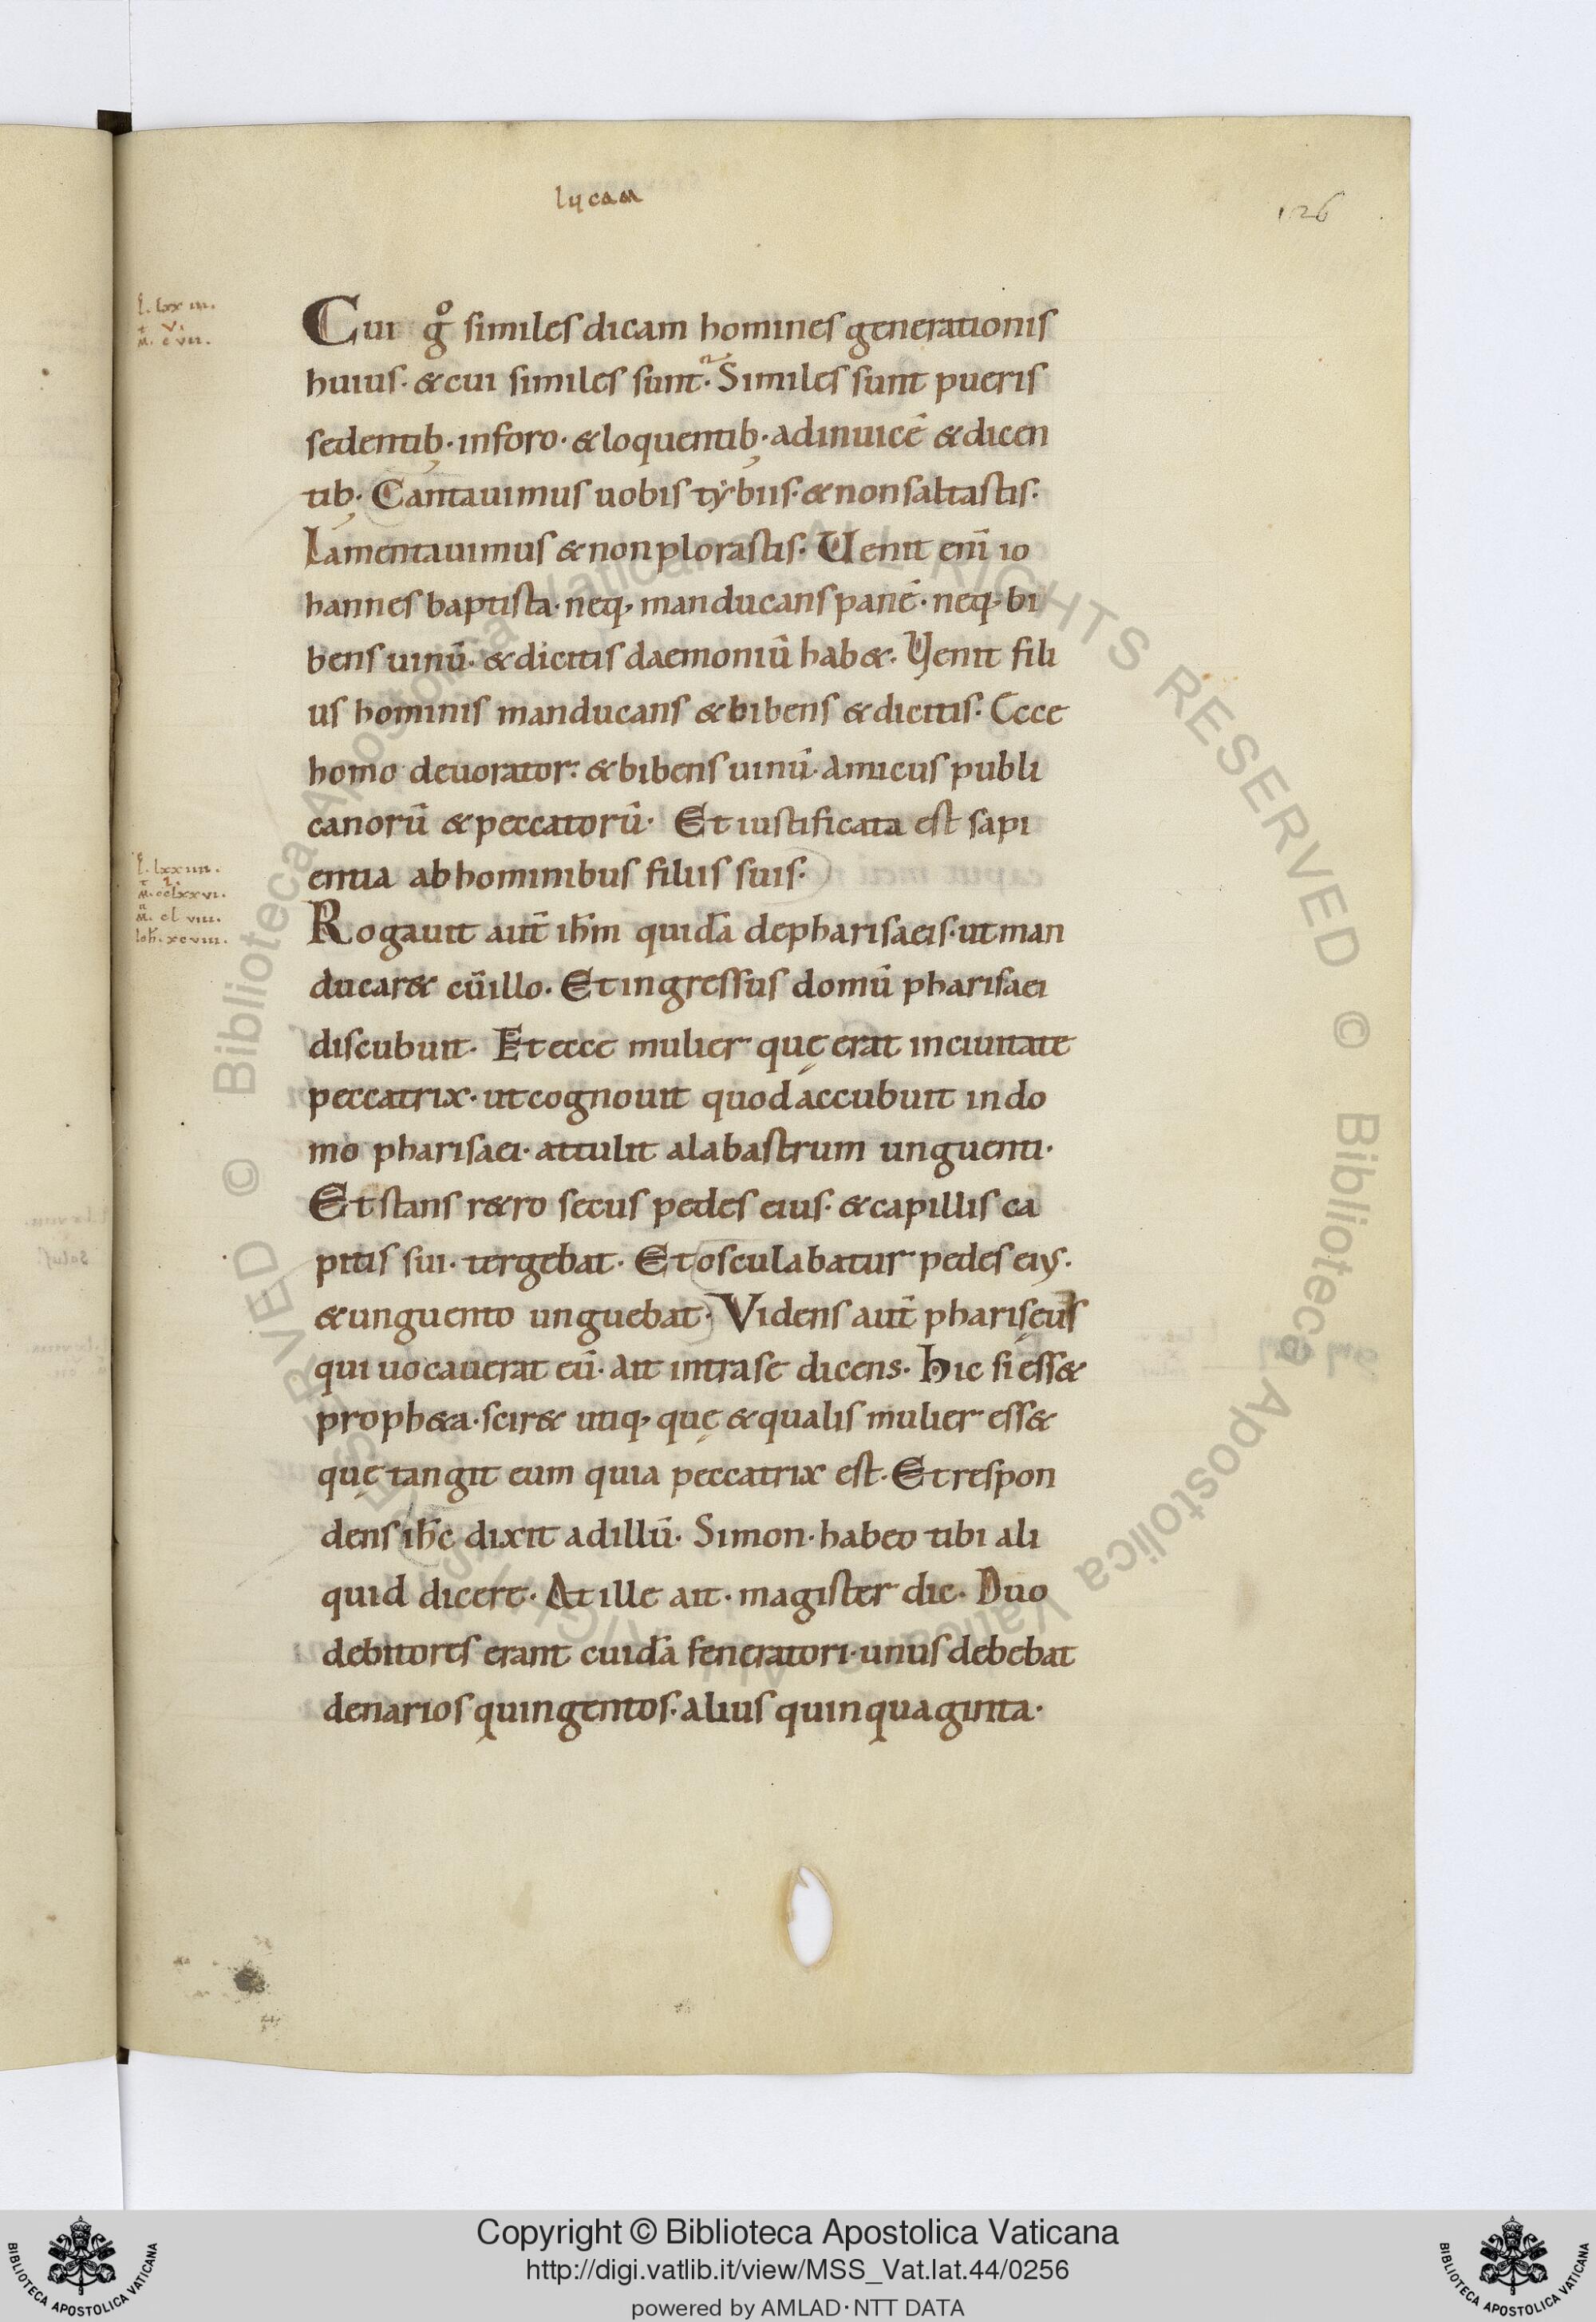 lucam
126
l. lxxiii.
t v.
m. cvii.
Cui gͦ similes dicam homines generationis
huius· & cui similes sunt· Similes sunt pueris
sedentib;· in foro· & loquentib;· adinuicē & dicen
tib;· Cantauimus uobis tẏbiis· & non saltastis·
Lamentauimus & non plorastis· Uenit eni̅ io
hannes baptista· neq; manducans panē· neq; bi
bens uinū· & dicitis daemoniū hab&· Uenit fili
us hominis manducans & bibens & dicitis· Ecce
homo deuorator· & bibens uinū· amicus publi
canorū & peccatorū· Et iustificata est sapi
entia ab hominibus filiis suis·
l. lxxiiii.
m. cclxxvi.
m. clviii.
ioh. xcviii.
Rogauit aut̅ ih̅m quidā de pharisaeis· ut man
ducar& cū illo· Et ingressus domū pharisaei
discubuit· Et ecce mulier quę erat in ciuitate
peccatrix· ut cognouit quod accubuit in do
mo pharisaei· attulit alabastrum unguenti·
Et stans r&ro secus pedes eius· & capillis ca
pitis sui· tergebat· Et osculabatur pedes eius·
& unguento unguebat· Videns aut̅ pharisęus
qui uocauerat eū· ait intra se dicens· hic si ess&
proph&a· scir& utiq; quę & qualis mulier ess&
quę tangit eum quia peccatrix est· Et respon
dens ih̅c dixit ad illū· Simon· habeo tibi ali
quid dicere· At ille ait· magister dic· Duo
debitores erant cuidā feneratori· unus debebat
denarios quingentos· alius quinquaginta·
© Biblioteca Apostolica Vaticana ALL RIGHTS RESERVED © Biblioteca Apostolica Vaticana ALL RIGHTS RESERVED
Copyright © Biblioteca Apostolica Vaticana
http://digi.vatlib.it/view/MSS_Vat.lat.44/0256
powered by AMLAD·NTT DATA
BIBLIOTECA APOSTOLICA VATICANA
BIBLIOTECA APOSTOLICA VATICANA